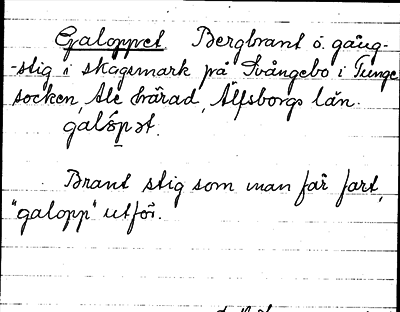 Galoppet Bergbrant o. gång-
-stig i skogsmark på Tvångebo i Tunge
socken, Ale härad, Älfsborgs län.
galópət.
Brant stig som man får fart,
"galopp" utför.